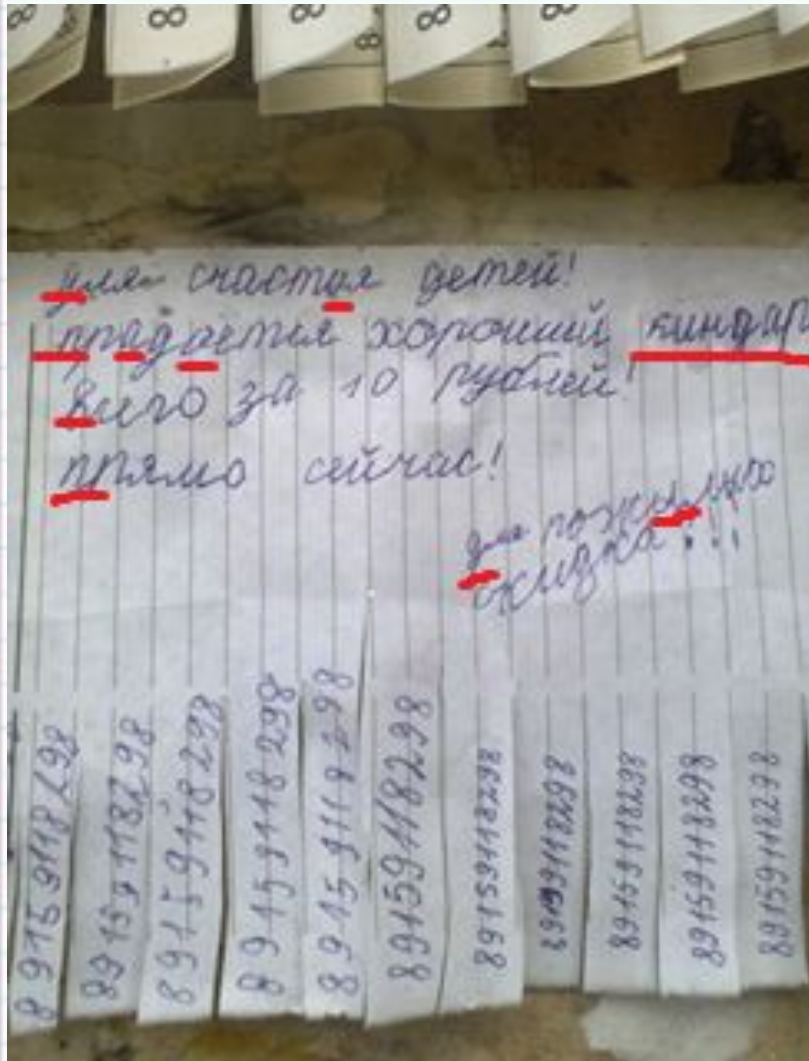 8 8 8 8 8
8
для счастоя детей!
прадается хороший киндар
всего за 10 рублей!
прямо сейчас!
для
скидка!!!
89159118298
89159118298
89159118298
89159118298
89159118298
89159118298
89159118298
89159118298
89159118298
89159118298
89159118298